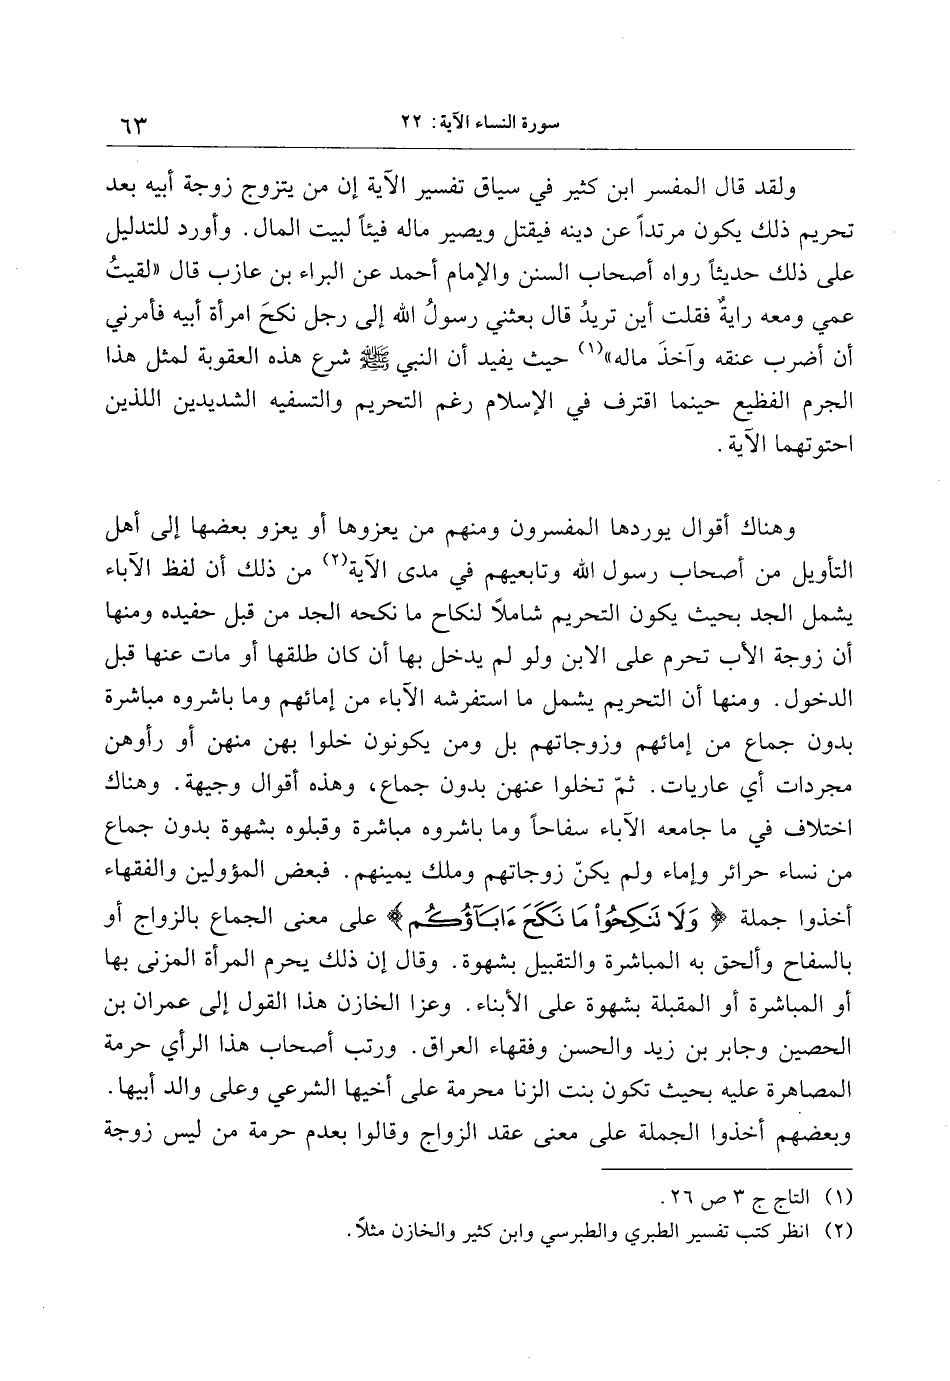 سورة النساء الآية: ٢٢
٦٣
ولقد قال المفسر ابن كثير في سياق تفسير الآية إن من يتزوج زوجة أبيه بعد
تحريم ذلك يكون مرتداً عن دينه فيقتل ويصير ماله فيئاً لبيت المال. وأورد للتدليل
على ذلك حديثاً رواه أصحاب السنن والإمام أحمد عن البراء بن عازب قال «لقيتُ
عمي ومعه رايةٌ فقلت أين تريدُ قال بعثني رسولُ الله إلى رجل نكحَ امرأة أبيه فأمرني
أن أضرب عنقه وآخذَ ماله»(١) حيث يفيد أن النبي ﷺ شرع هذه العقوبة لمثل هذا
الجرم الفظيع حينما اقترف في الإسلام رغم التحريم والتسفيه الشديدين اللذين
احتوتهما الآية.
وهناك أقوال يوردها المفسرون ومنهم من يعزوها أو يعزو بعضها إلى أهل
التأويل من أصحاب رسول الله وتابعيهم في مدى الآية(٢) من ذلك أن لفظ الآباء
يشمل الجد بحيث يكون التحريم شاملاً لنكاح ما نكحه الجد من قبل حفيده ومنها
أن زوجة الأب تحرم على الابن ولو لم يدخل بها أن كان طلقها أو مات عنها قبل
الدخول. ومنها أن التحريم يشمل ما استفرشه الآباء من إمائهم وما باشروه مباشرة
بدون جماع من إمائهم وزوجاتهم بل ومن يكونون خلوا بهن منهن أو رأوهن
مجردات أي عاريات. ثمّ تخلوا عنهن بدون جماع، وهذه أقوال وجيهة. وهناك
اختلاف في ما جامعه الآباء سفاحاً وما باشروه مباشرة وقبلوه بشهوة بدون جماع
من نساء حرائر وإماء ولم يكنّ زوجاتهم وملك يمينهم. فبعض المؤولين والفقهاء
أخذوا جملة ﴿وَلَا تَنكِحُواْ مَا نَكَحَ ءَابَآؤُكُم﴾ على معنى الجماع بالزواج أو
بالسفاح وألحق به المباشرة والتقبيل بشهوة. وقال إن ذلك يحرم المرأة المزنى بها
أو المباشرة أو المقبلة بشهوة على الأبناء. وعزا الخازن هذا القول إلى عمران بن
الحصين وجابر بن زيد والحسن وفقهاء العراق. ورتب أصحاب هذا الرأي حرمة
المصاهرة عليه بحيث تكون بنت الزنا محرمة على أخيها الشرعي وعلى والد أبيها.
وبعضهم أخذوا الجملة على معنى عقد الزواج وقالوا بعدم حرمة من ليس زوجة
(١) التاج ج ٣ ص ٢٦.
(٢) انظر كتب تفسير الطبري والطبرسي وابن كثير والخازن مثلاً.